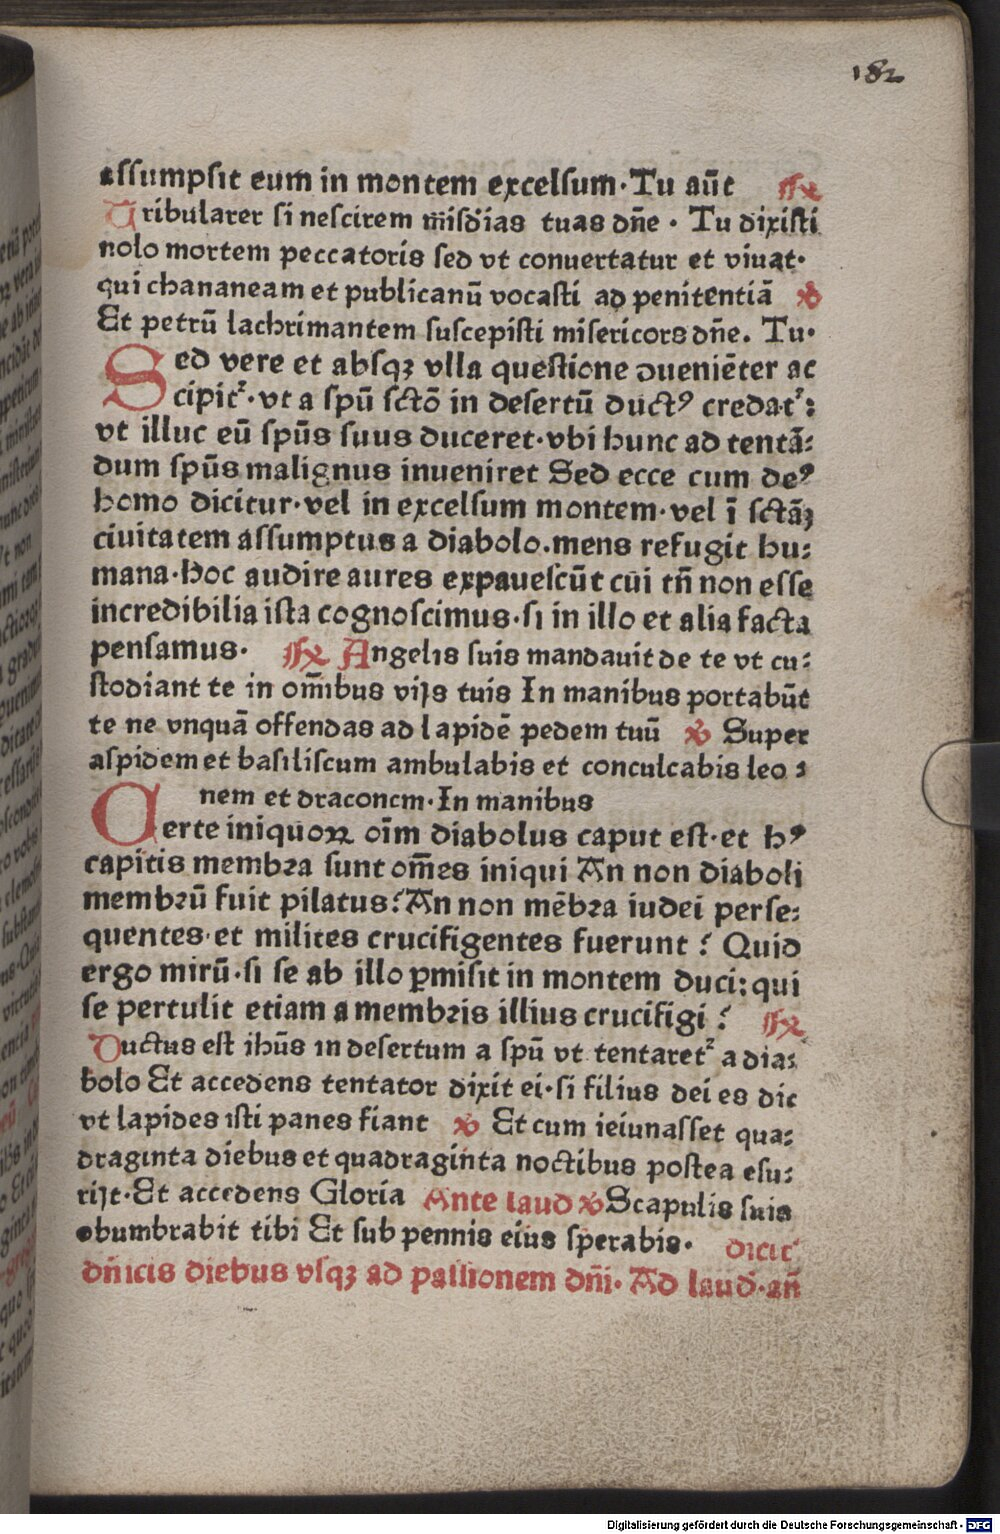 182
assumpsit eum in montem excelsum·Tu aūt ꝶ
Tribularer si nescirem m̄isďias tuas dn̄e · Tu dixisti
nolo mortem peccatoris sed vt conuertatur et viuat·
qui chananeam et publicanū vocasti ad penitentiā ℣
Et petrū lachrimantem suscepisti misericors dn̄e. Tu·
Sed vere et absqꝫ vlla questione ɔueniēter ac
cipit᷑·vt a spū sctō in desertū ductꝰ credat᷑:
vt illuc eū spūs suus duceret·vbi hunc ad tentā:
dum spūs malignus inueniret Sed ecce cum deꝰ
homo dicitur·vel in excelsum montem·vel ī sctāꝫ
ciuitatem assumptus a diabolo.mens refugit hu:
mana·hoc audire aures expauescūt cui tn̄ non esse
incredibilia ista cognoscimus·si in illo et alia facta
pensamus· ꝶ Angelis suis mandauit de te vt cu:
stodiant te in om̄ibus vijs tuis In manibus portabūt
te ne vnquā offendas ad lapidē pedem tuū ℣ Super
aspidem et basiliscum ambulabis et conculcabis leo :
nem et draconem·In manibus
Certe iniquoꝝ oīm diabolus caput est·et hꝰ
capitis membra sunt om̄es iniqui An non diaboli
membrū fuit pilatus? An non mēbra iudei perse:
quentes·et milites crucifigentes fuerunt ? Quid
ergo mirū·si se ab illo ꝑmisit in montem duci: qui
se pertulit etiam a membris illius crucifigi ? ꝶ
Ductus est ihūs in desertum a spū vt tentaret᷑ a dia:
bolo Et accedens tentator dixit ei·si filius dei es dic
vt lapides isti panes fiant ℣ Et cum ieiunasset qua:
draginta diebus et quadraginta noctibus postea esu:
rijt·Et accedens Gloria Ante laud ℣ Scapulis suis
obumbrabit tibi Et sub pennis eius sperabis· dicit᷑
dn̄icis diebus vsqꝫ ad passionem dn̄i· Ad laud·an̄
Digitalisierung gefördert durch die Deutsche Forschungsgemeinschaft - DFG